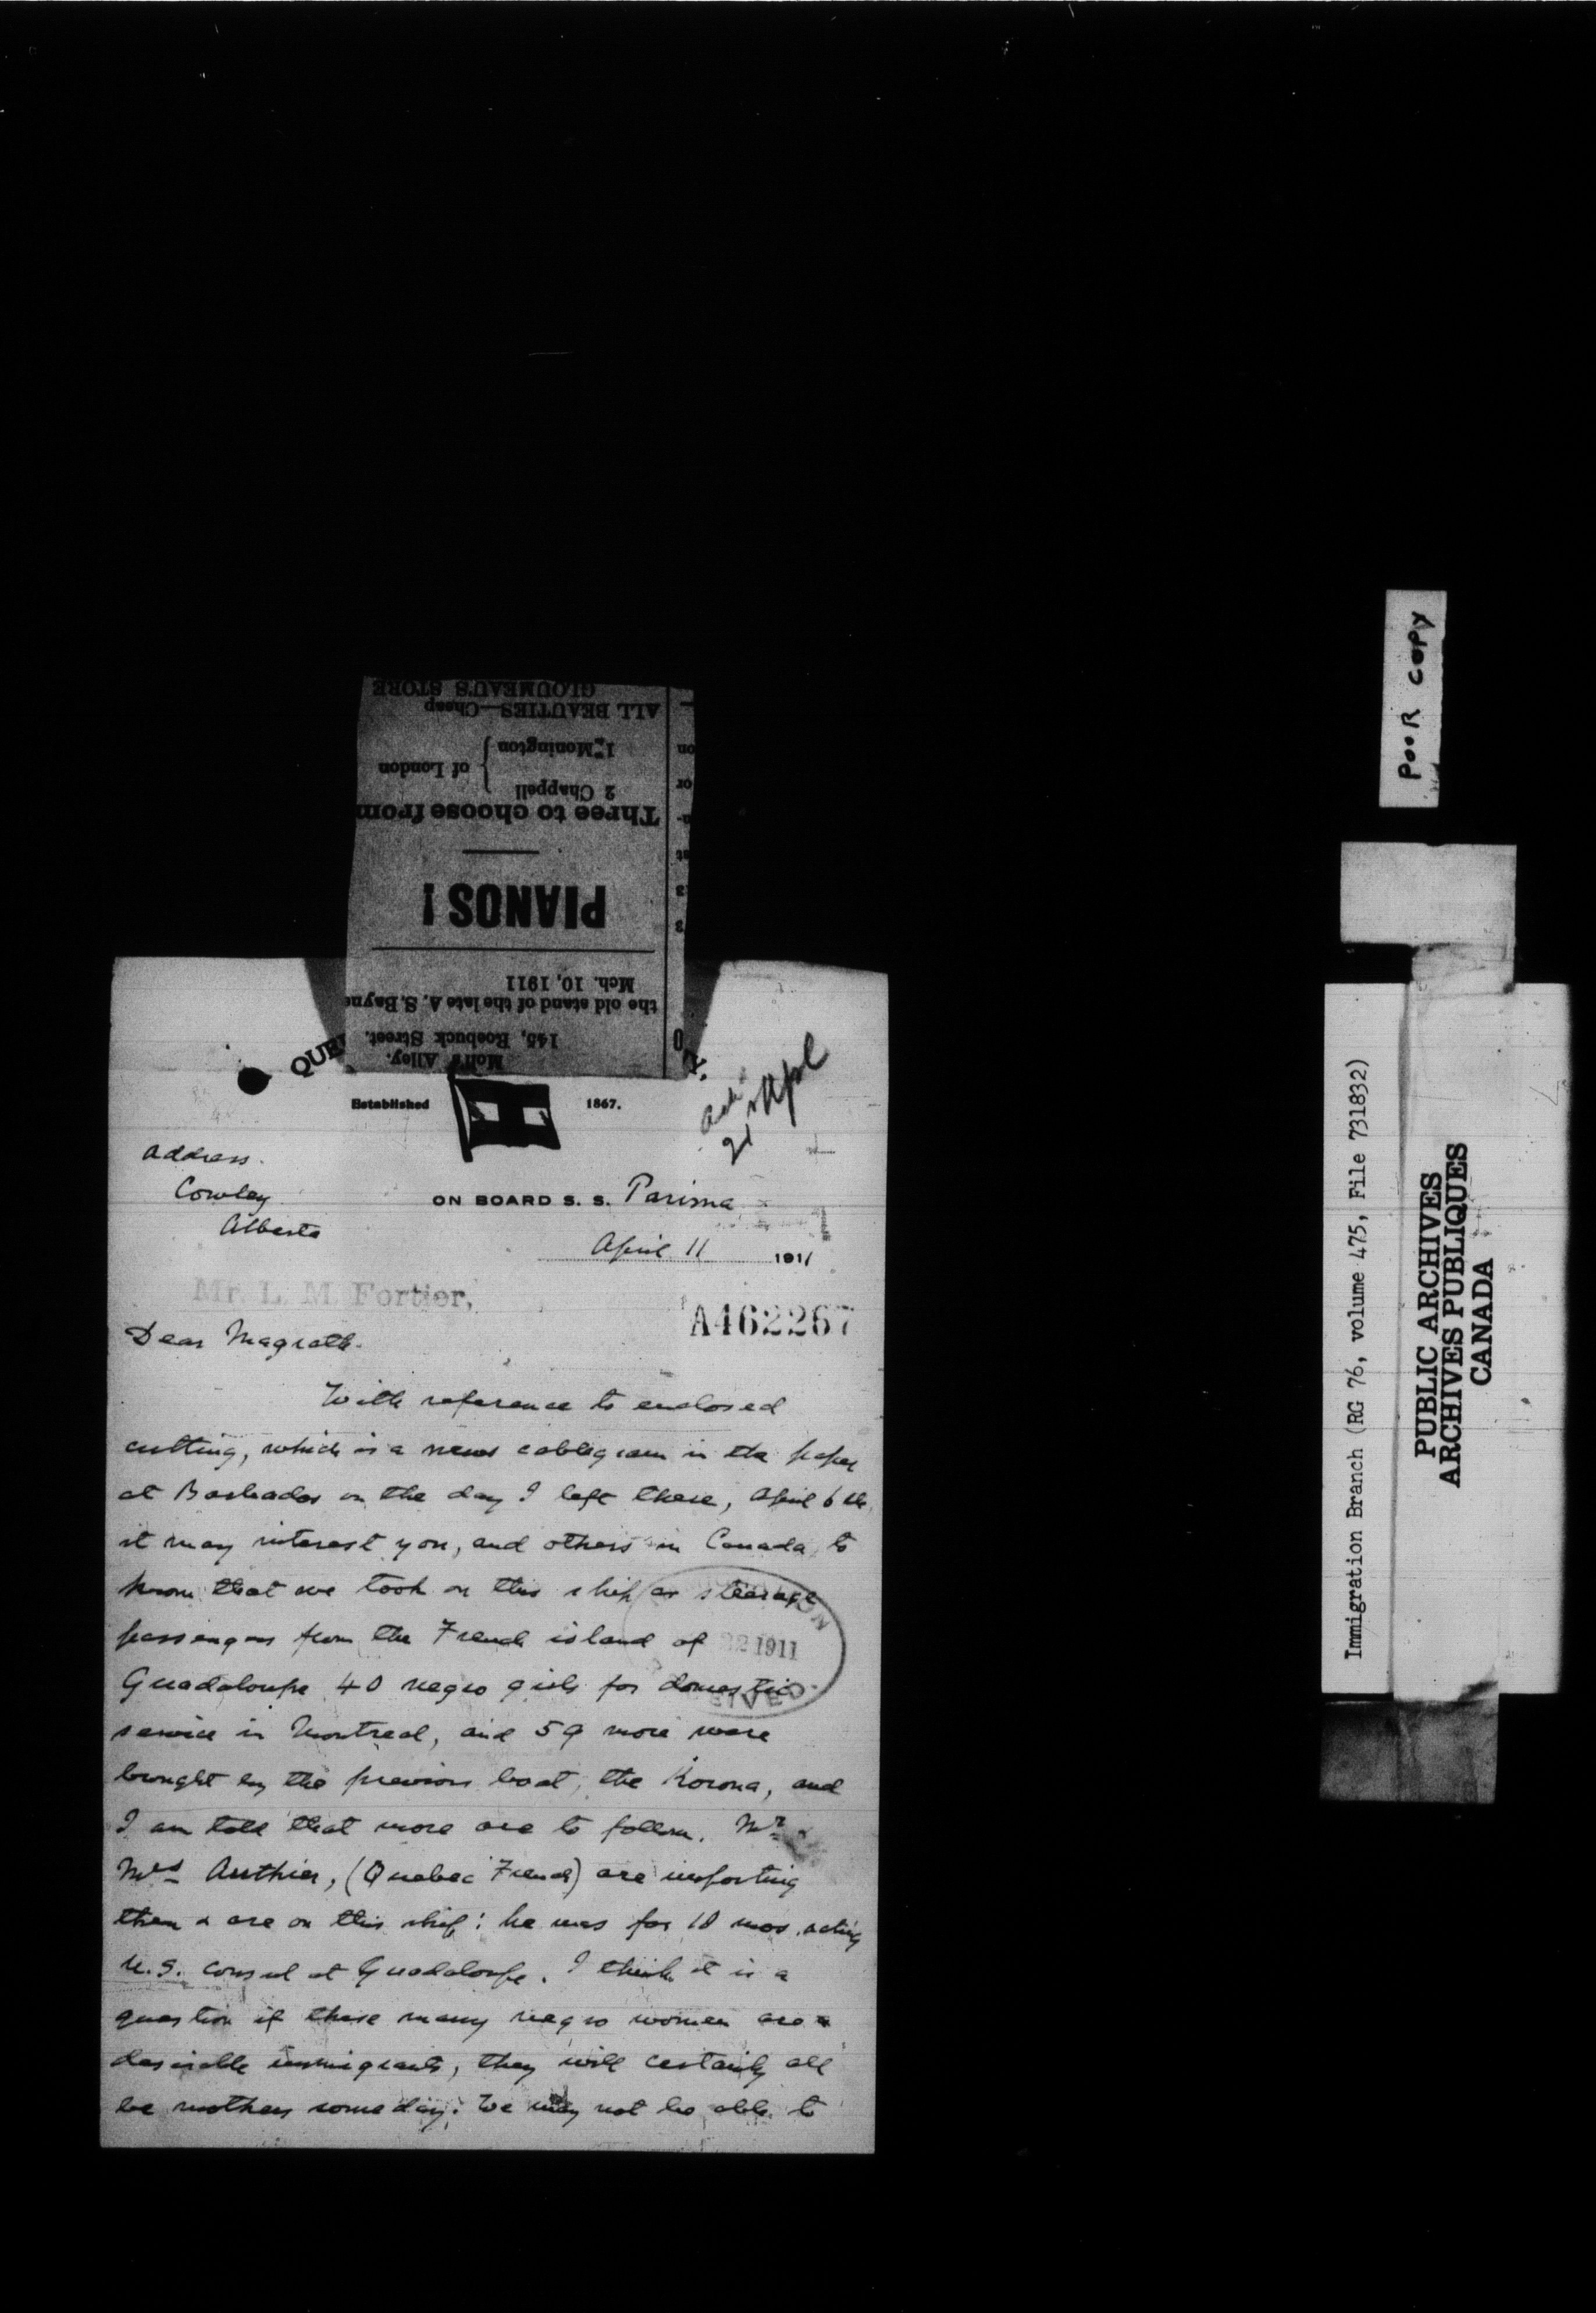 GLOUMEAU'S STORE
ALL BEAUTIES—Cheap
1 Monington
of London
2 Chappell
Three to choose from
PIANOS!
Mch. 10, 1911
the old stand of the late A. S. Bayne
145, Roebuck Street.
Moll's Alley.
QUE
Established 1867.
Address.
Cowley
Alberta
ON BOARD S. S. Parima
April 11 1911
Mr. L. M. Fortier,
A462267
Dear Magrath.
With reference to enclosed
cutting, which is a news cablegram in the paper
at Barbados on the day I left there, April 6th
it may interest you, and others in Canada, to
know that we took on this ship as stearage
passengers from the French island of
Guadaloupe 40 negro girls for domestic
service in Montreal, and 59 more were
brought by the previous boat, the Korona, and
I am told that more are to follow. Mr
Mrs Authier, (Quebec French) are importing
them & are on this ship: he was for 10 mos. acting
U.S. consul at Guadaloupe. I think it is a
question if these many negro women are
desirable immigrants, they will certainly all
be mothers some day. We may not be able to
22 1911
POOR COPY
Immigration Branch (RG 76, volume 475, File 731832)
PUBLIC ARCHIVES
ARCHIVES PUBLIQUES
CANADA